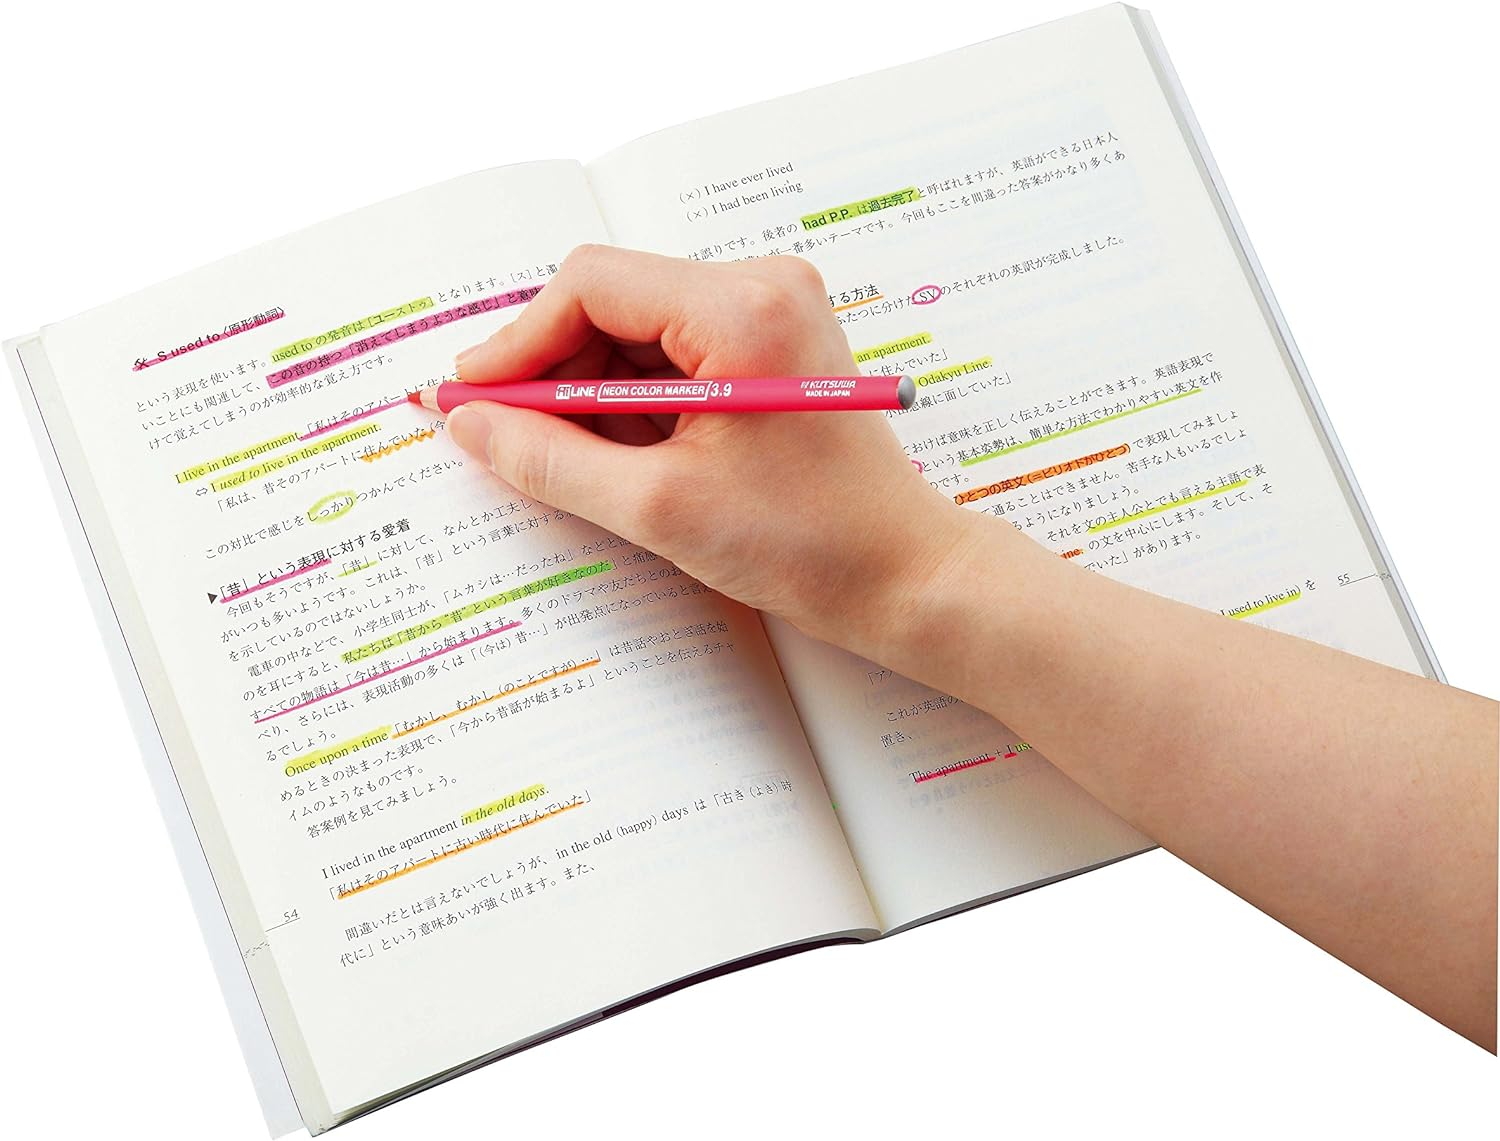 S used to〈原形動詞〉
という表現を使います。used to の発音は［ユーストゥ］となります。［ス］と濁
いことにも関連して、この音の持つ「消えてしまうような感じ」と意味
けて覚えてしまうのが効率的な覚え方です。
I live in the apartment.「私はそのアパートに住ん
⇔ I used to live in the apartment.
「私は、昔そのアパートに住んでいた（今
この対比で感じをしっかりつかんでください。
▶「昔」という表現に対する愛着
今回もそうですが、「昔」に対して、なんとか工夫し
がいつも多いようです。これは、「昔」という言葉に対する
を示しているのではないしょうか。
電車の中などで、小学生同士が、「ムカシは…だったね」などと
のを耳にすると、私たちは「昔から“昔”という言葉が好きなのだ」と痛感
すべての物語は「今は昔…」から始まります。多くのドラマや友だちとのお
べり、さらには、表現活動の多くは「（今は）昔…」が出発点になっていると言え
るでしょう。
Once upon a time「むかし、むかし（のことですが）…」は昔話やおとぎ話を始
めるときの決まった表現で、「今から昔話が始まるよ」ということを伝えるチャ
イムのようなものです。
答案例を見てみましょう。
I lived in the apartment in the old days.
「私はそのアパートに古い時代に住んでいた」
間違いだとは言えないでしょうが、in the old (happy) days は「古き（よき）時
代に」という意味あいが強く出ます。また、
54
FitLINE NEON COLOR MARKER 3.9
KUTSUWA
MADE IN JAPAN
(×) I have ever lived
(×) I had been living
は誤りです。後者の had P.P. は過去完了と呼ばれますが、英語ができる日本人
違いが一番多いテーマです。今回もここを間違った答案がかなり多くあ
する方法
ふたつに分けた SV のそれぞれの英訳が完成しました。
an apartment.
に住んでいた」
Odakyu Line.
小田急線に面していた」
ておけば意味を正しく伝えることができます。英語表現で
という基本姿勢は、簡単な方法でわかりやすい英文を作
のです。
ひとつの英文（＝ピリオドがひとつ）で表現してみましょ
て通ることはできません。苦手な人もいるでしょ
るようになりましょう。
それを文の主人公とでも言える主語で表
ine. の文を中心にします。そして、そ
でいた」があります。
I used to live in) を
これが英語の
置き、
The apartment + I use
55